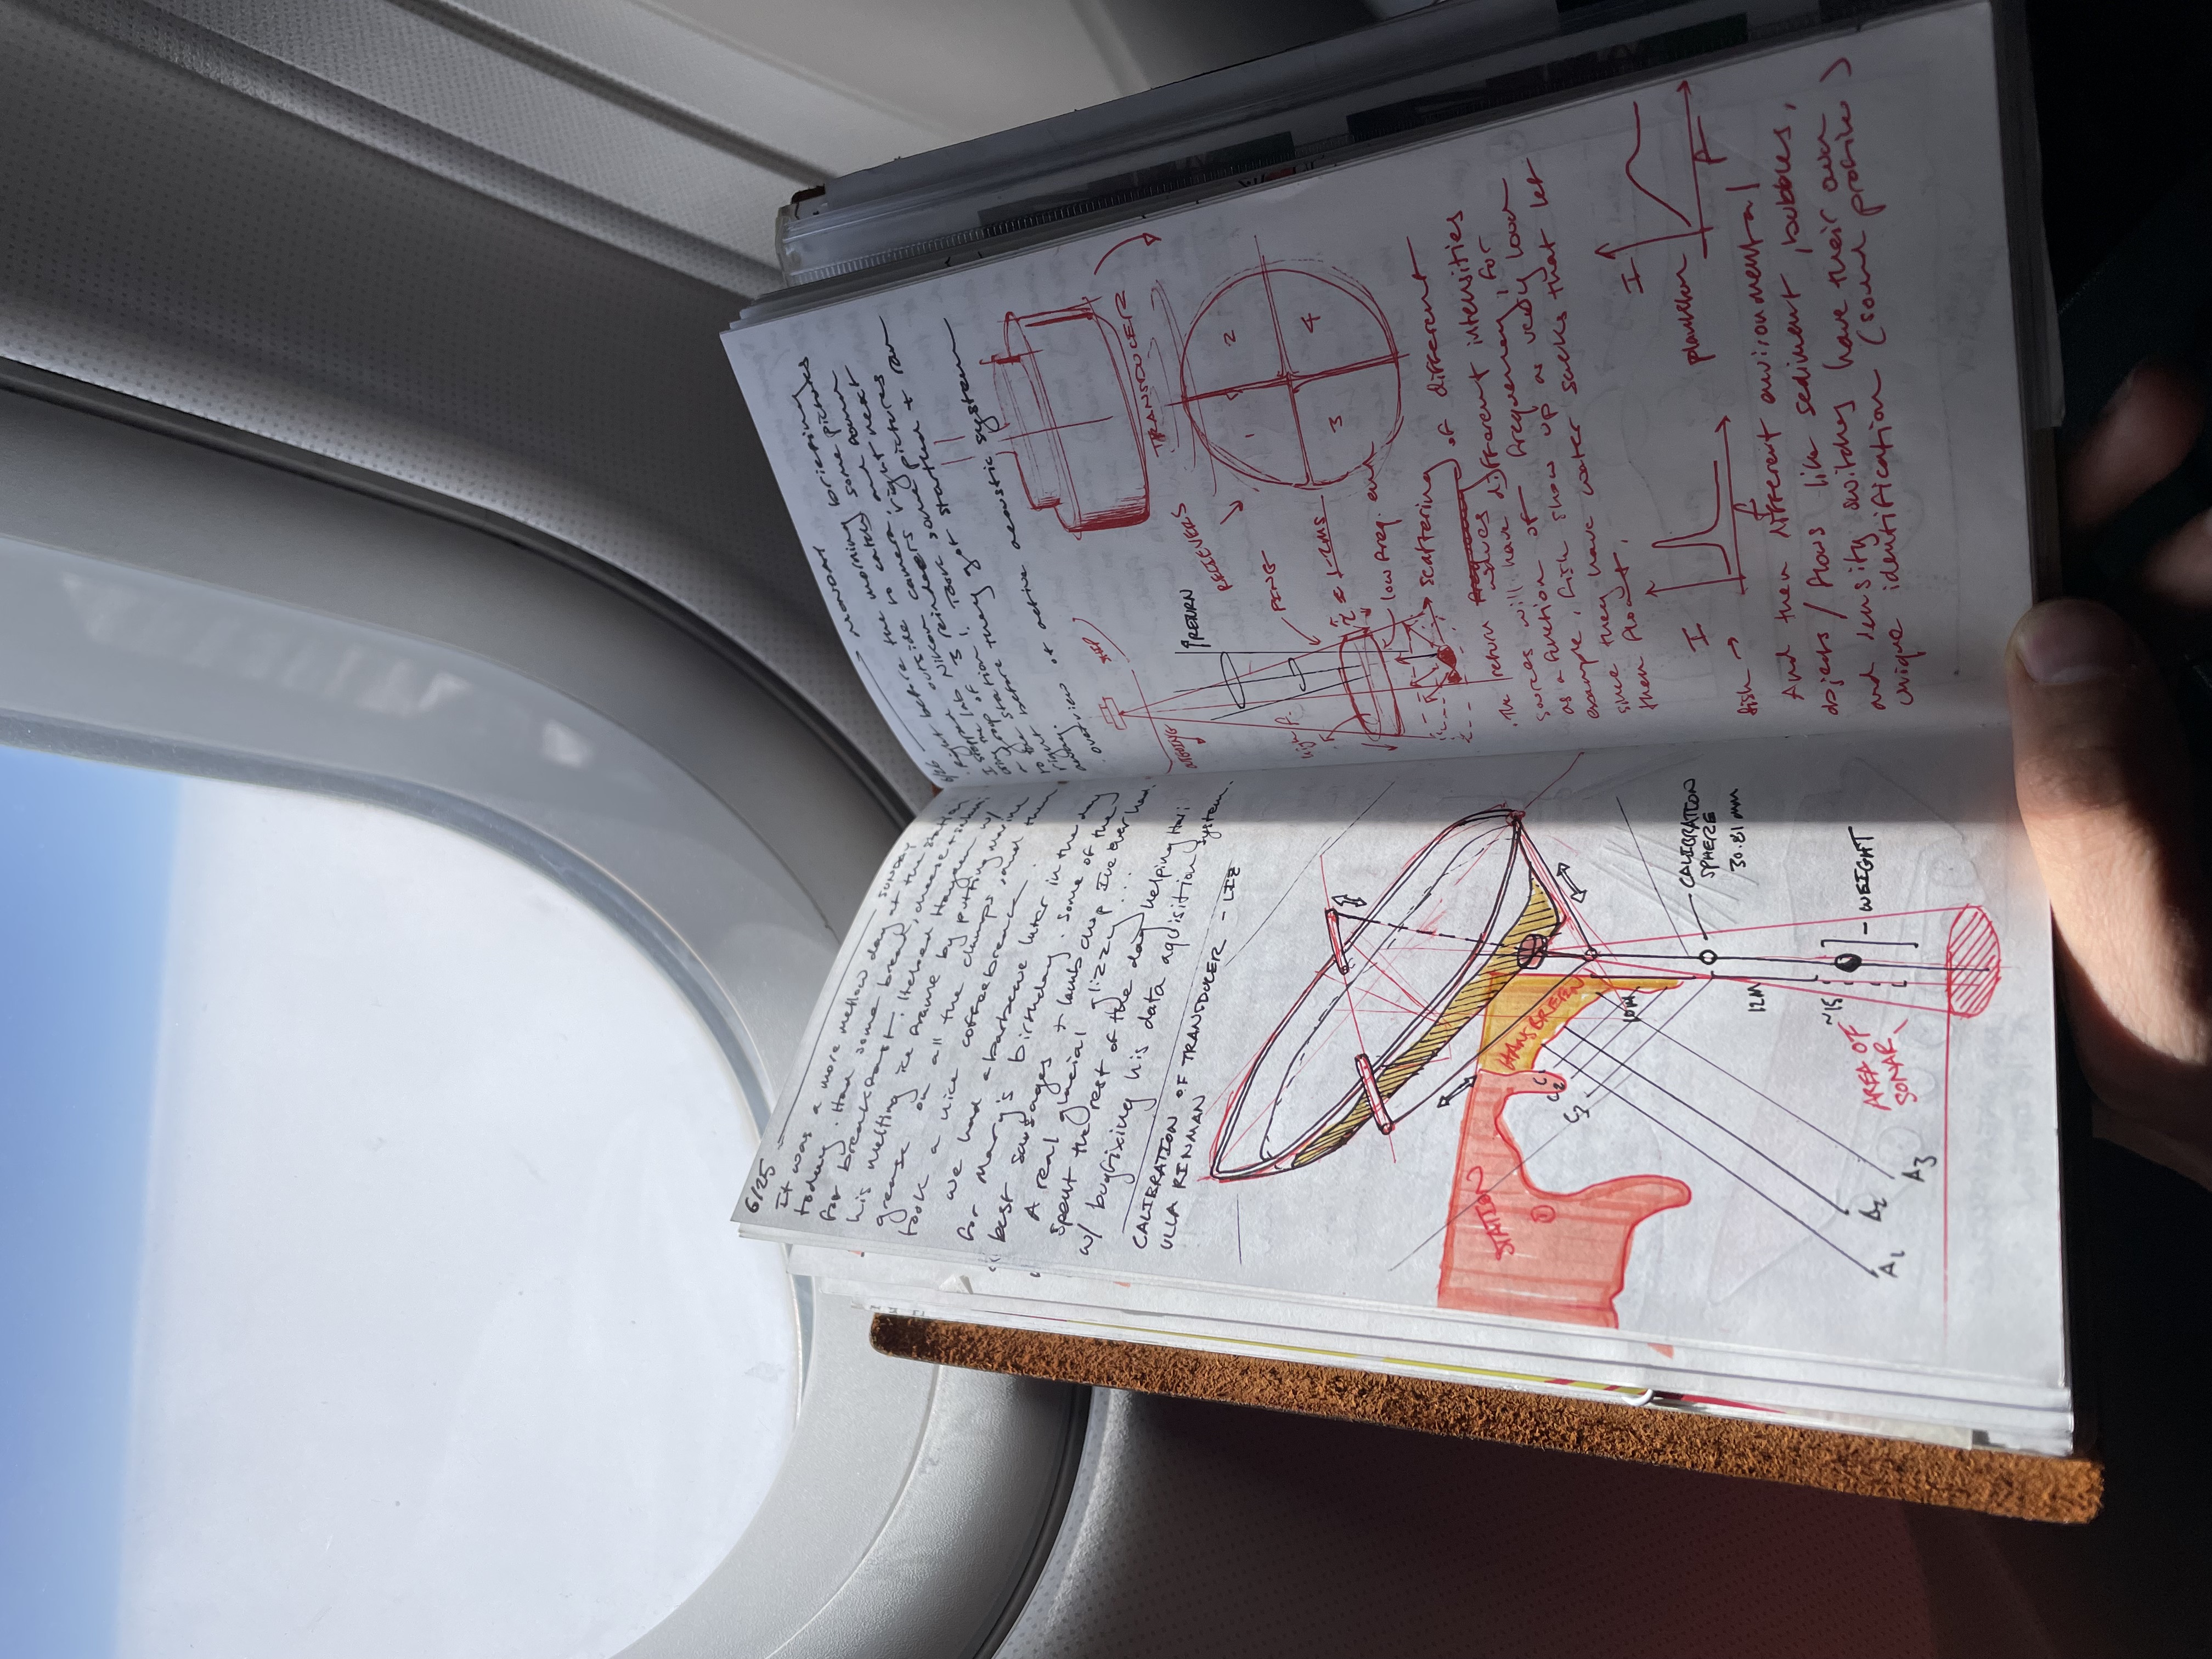 6/25 SUNDAY
It was a more mellow day at the station
today. Had some bread, cheese + salami
for breakfast. Helped Hayden w/
his melting ice frame by putting marine
grease on all the clamps, and then
took a nice coffeebreak.
we had a barbecue later in the day
for Mary's birthday. Some of the
best sausages + lamb chop I've ever had.
A real glacial glizzy...
spent the rest of the day helping Hari
w/ bugfixing his data aquisition system.
CALIBRATION OF TRANSDUCER - LIZ
ULLA RINMAN
STATION
①
HANSBREEN
C1
C2
C3
10M
CALIBRATION
SPHERE
30.81 mm
12M
~15
WEIGHT
AREA OF
SONAR
A1
A2
A3
6/26 MONDAY
. Right before the morning briefing
I stepped outside to catch some pictures
using the lab Nikon camera, and found
a group of 3 reindeers right next
to the station! Took some pictures
right before they got startled + ran
away.
. overview of active acoustic system
SHIP
TRANSDUCER
OUTGOING
RETURN
RECIEVERS
1
2
3
4
PING
high f.
τ ≈ 1-2ms
low freq. end
scattering
. The return waves of different
sources will have different intensities
as a function of frequency, for
example, fish show up as very loud
since they have water sacks that let
them float.
I
f
fish →
I
F
plankton
And then different environmental
objects / flows like sediment, bubbles,
and density switches have their own
unique identification (sound profile)